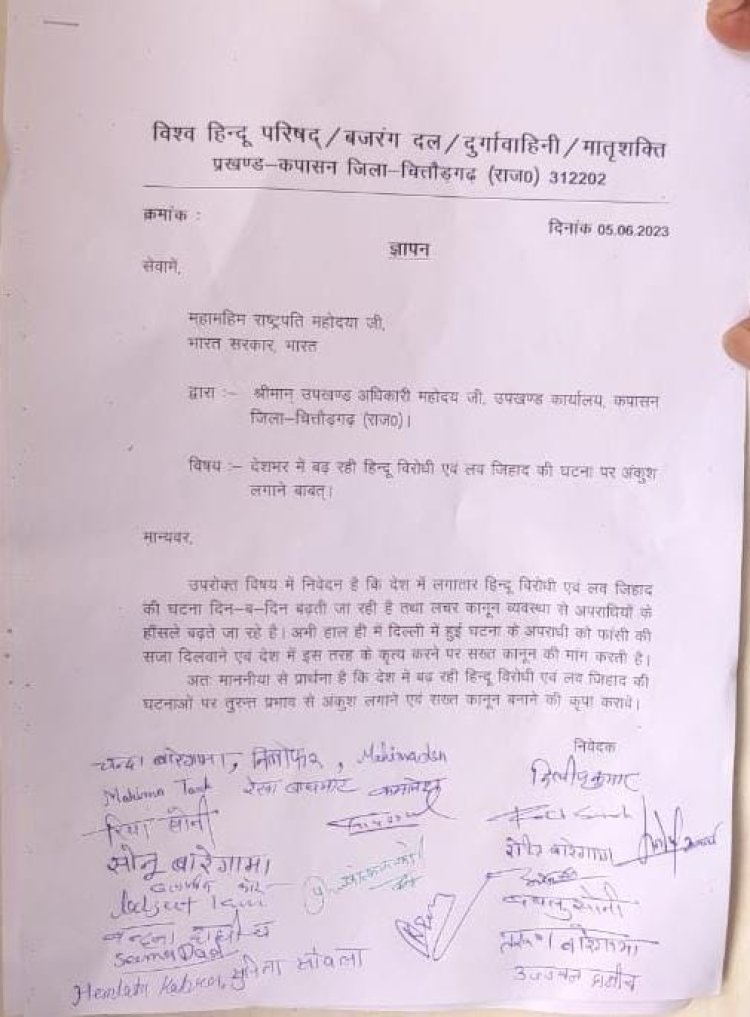 विश्व हिन्दू परिषद् / बजरंग दल / दुर्गावाहिनी / मातृशक्ति
प्रखण्ड–कपासन जिला–चित्तौड़गढ़ (राज0) 312202
क्रमांक :
दिनांक 05.06.2023
ज्ञापन
सेवामें,
महामहिम राष्ट्रपति महोदया जी,
भारत सरकार, भारत
द्वारा :– श्रीमान् उपखण्ड अधिकारी महोदय जी, उपखण्ड कार्यालय, कपासन
जिला–चित्तौड़गढ़ (राज0)।
विषय :– देशभर में बढ़ रही हिन्दू विरोधी एवं लव जिहाद की घटना पर अंकुश
लगाने बाबत्।
मान्यवर,
उपरोक्त विषय में निवेदन है कि देश में लगातार हिन्दू विरोधी एवं लव जिहाद
की घटना दिन–ब–दिन बढ़ती जा रही है तथा लचर कानून व्यवस्था से अपराधियों के
हौंसले बढ़ते जा रहे है। अभी हाल ही में दिल्ली में हुई घटना के अपराधी को फांसी की
सजा दिलवाने एवं देश में इस तरह के कृत्य करने पर सख्त कानून की मांग करती है।
अतः माननीया से प्रार्थना है कि देश में बढ़ रही हिन्दू विरोधी एवं लव जिहाद की
घटनाओं पर तुरन्त प्रभाव से अंकुश लगाने एवं सख्त कानून बनाने की कृपा करावें।
निवेदक
चन्दा बारेगामा, निलोफर,
दिलीप कुमार
Mahima Tank रेखा
रिया सोनी
सोनू बारेगामा
बारेगामा
सोनी
बारेगामा
Hemlata सुनिता
उज्जवल दाधीच